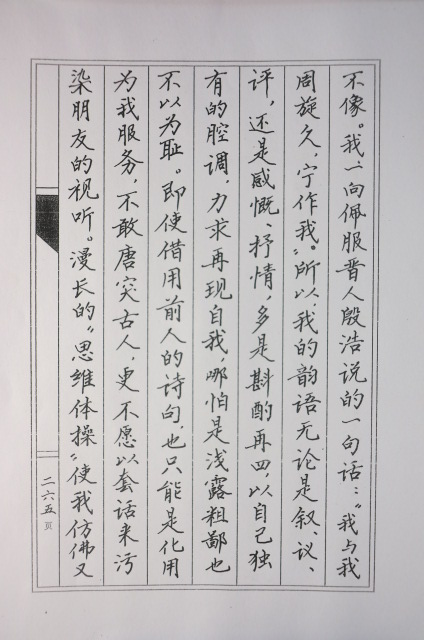 不像。我一向佩服晋人殷浩说的一句话：“我与我
周旋久，宁作我。”所以，我的韵语无论是叙、议、
评，还是感慨、抒情，多是斟酌再四，以自己独
有的腔调，力求再现自我，哪怕是浅露粗鄙也
不以为耻。即使借用前人的诗句，也只能是化用
为我服务，不敢唐突古人，更不愿以套话来污
染朋友的视听。漫长的“思维体操”使我仿佛又
二六五页